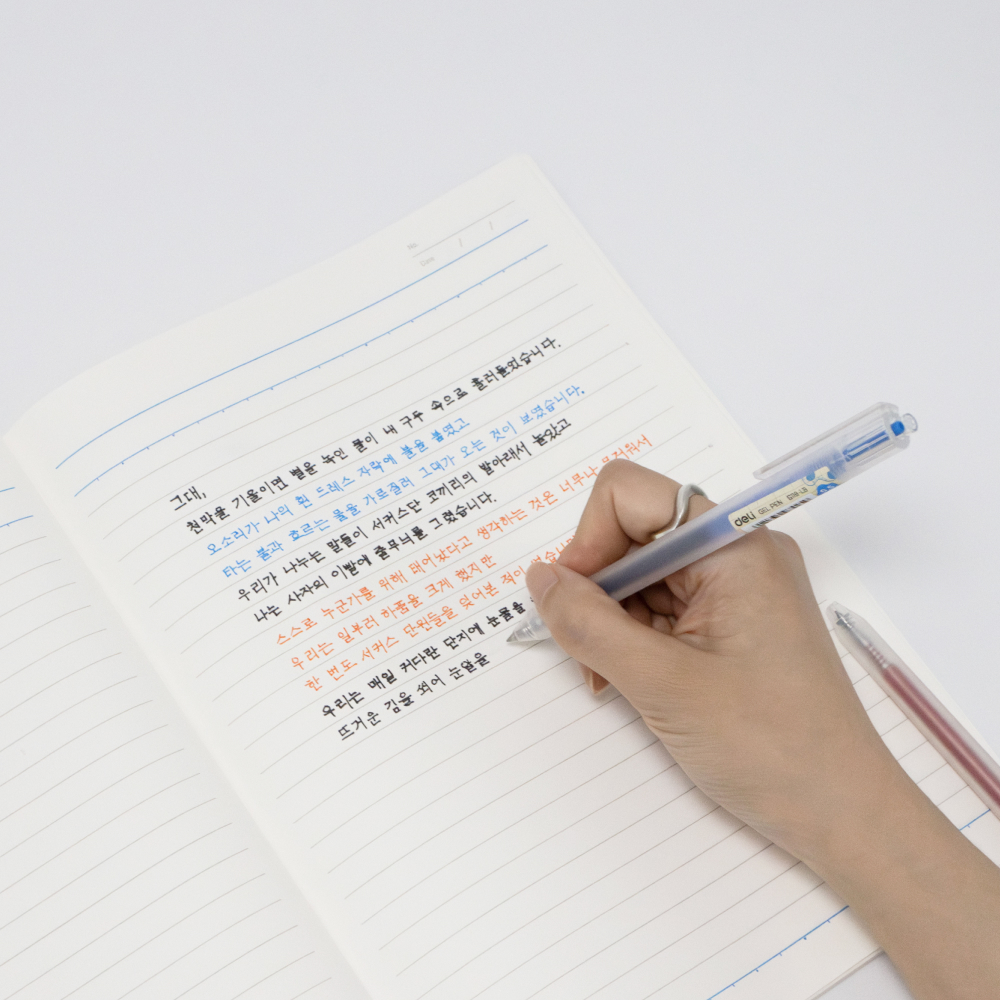 No.
Date
그대,
천막을 기울이면 별을 녹인 물이 내 구두 속으로 흘러들었습니다.
오소리가 나의 흰 드레스 자락에 불을 붙였고
타는 불과 흐르는 물을 가로질러 그대가 오는 것이 보였습니다.
우리가 나누는 말들이 서커스단 코끼리의 발아래서 놀았고
나는 사자의 이빨에 줄무늬를 그렸습니다.
스스로 누군가를 위해 태어났다고 생각하는 것은 너무나 무거워서
우리는 일부러 하품을 크게 했지만
한 번도 서커스 단원들을 잊어본 적이
우리는 매일 커다란 단지에 눈물을
뜨거운 김을 쐬어 눈알을
deli GEL PEN